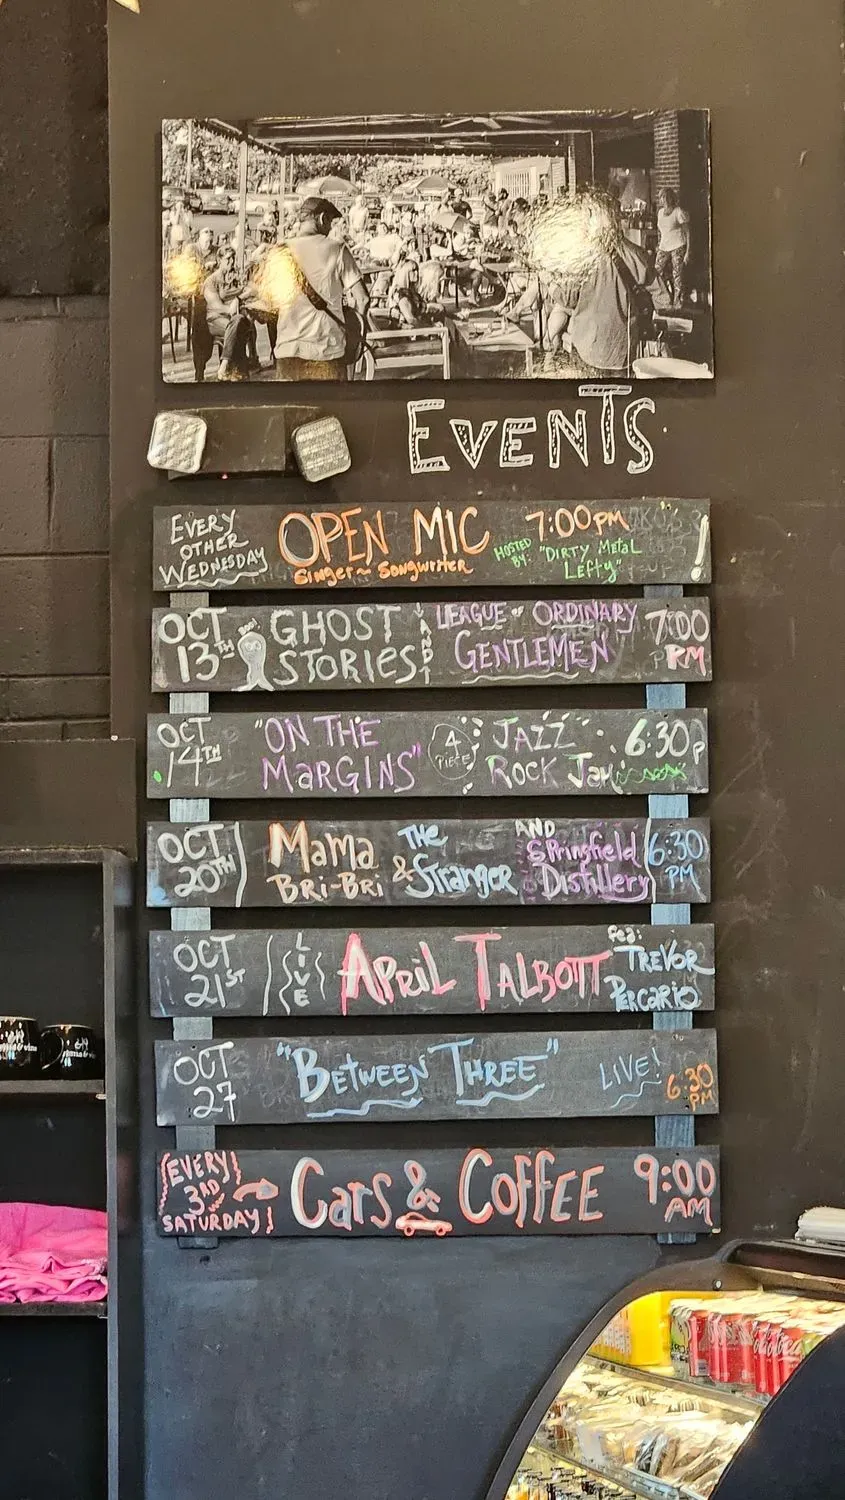 EVENTS
EVERY OTHER WEDNESDAY
OPEN MIC
Singer~Songwriter
7:00PM
HOSTED BY: "DIRTY METAL LEFTY"
!
OCT 13TH
BOO!
GHOST STORIES
LEAGUE of ORDINARY GENTLEMEN
7:00 PM
OCT 14TH
"ON THE MARGINS"
4 PIECE
JAZZ ROCK JAM
6:30P
OCT 20TH
MAMA BRI-BRI
& THE Stranger
AND Springfield Distillery
6:30 PM
OCT 21ST
LIVE
APRIL TALBOTT
feat: TREVOR PERCARIO
OCT 27
"BETWEEN THREE"
LIVE!
6:30 PM
EVERY 3RD SATURDAY!
CARS & COFFEE
9:00 AM